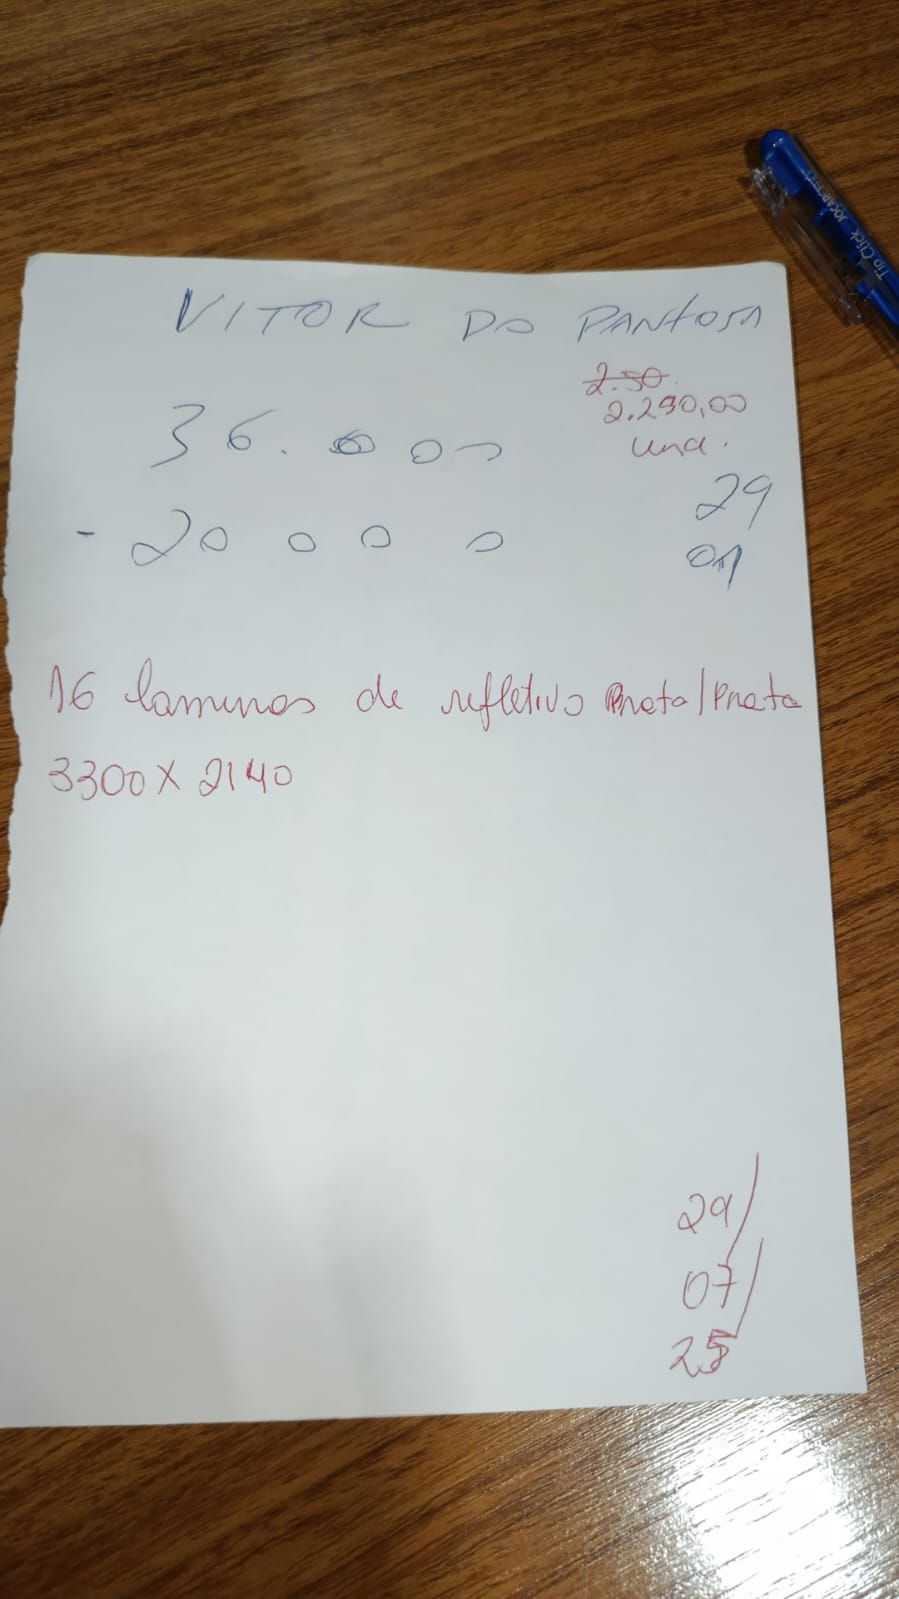 VITOR DO PANTOSA
2.50.
2.290,00
una.
36.000
29
- 20 0 0 0
07
16 laminas de refletivo Prata/Prata
3300 X 2140
29/
07/
25
Tip Click JOCAR